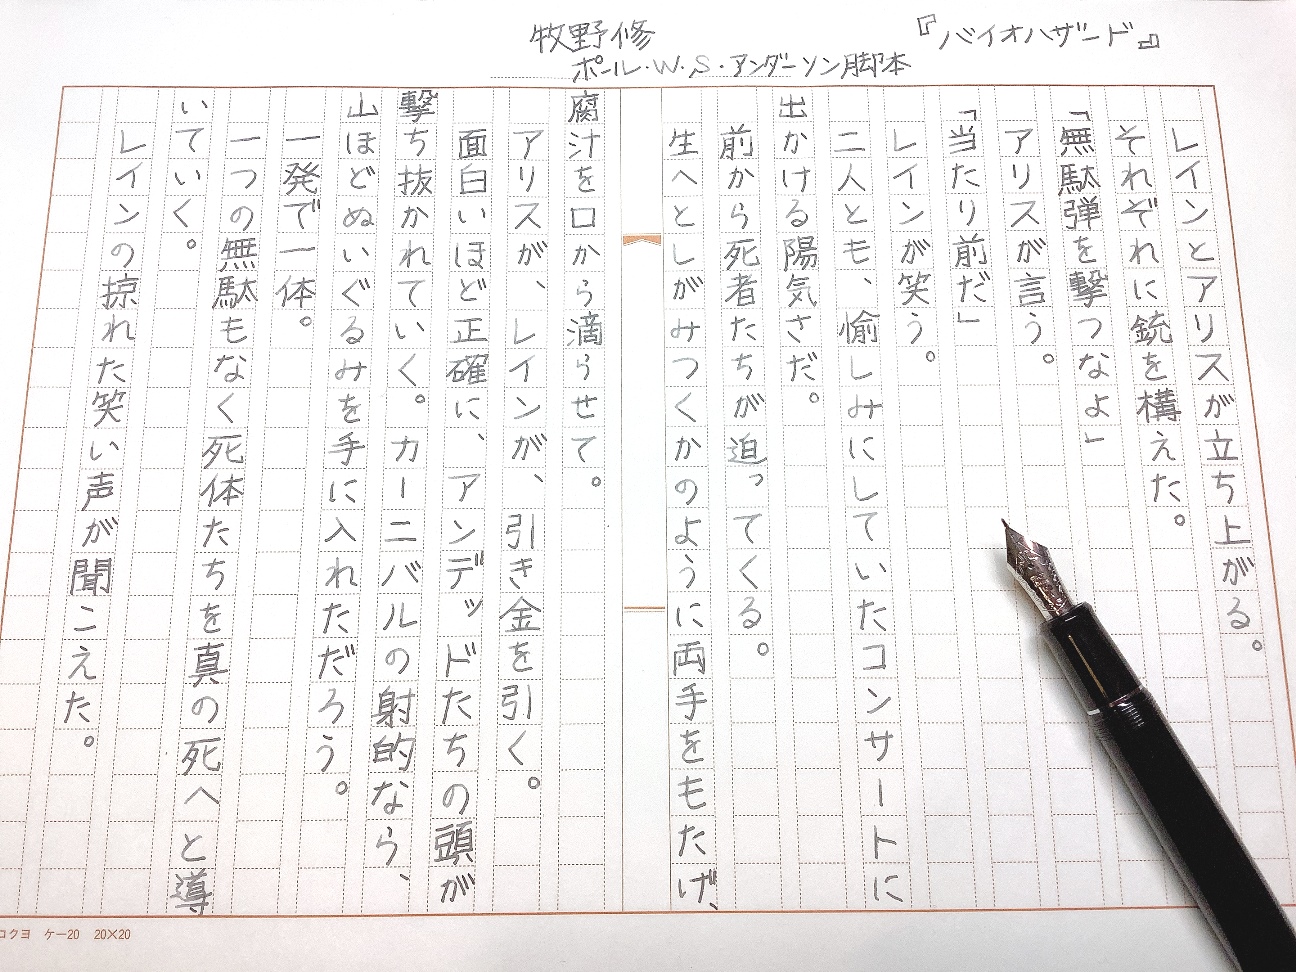 『バイオハザード』
牧野修
ポール・W・S・アンダーソン脚本
レインとアリスが立ち上がる。
それぞれに銃を構えた。
「無駄弾を撃つなよ」
アリスが言う。
「当たり前だ」
レインが笑う。
二人とも、愉しみにしていたコンサートに
出かける陽気さだ。
前から死者たちが迫ってくる。
生へとしがみつくかのように両手をもたげ、
腐汁を口から滴らせて。
アリスが、レインが、引き金を引く。
面白いほど正確に、アンデッドたちの頭が
撃ち抜かれていく。カーニバルの射的なら、
山ほどぬいぐるみを手に入れただろう。
一発で一体。
一つの無駄もなく死体たちを真の死へと導
いていく。
レインの掠れた笑い声が聞こえた。
コクヨ ケー20 20×20